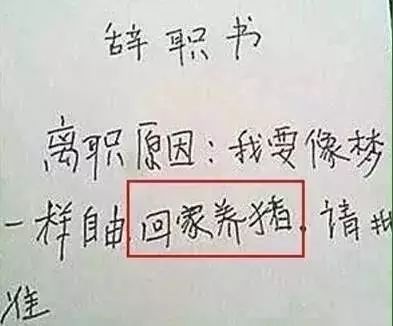 辞职书
离职原因：我要像梦
一样自由，回家养猪。请批
准